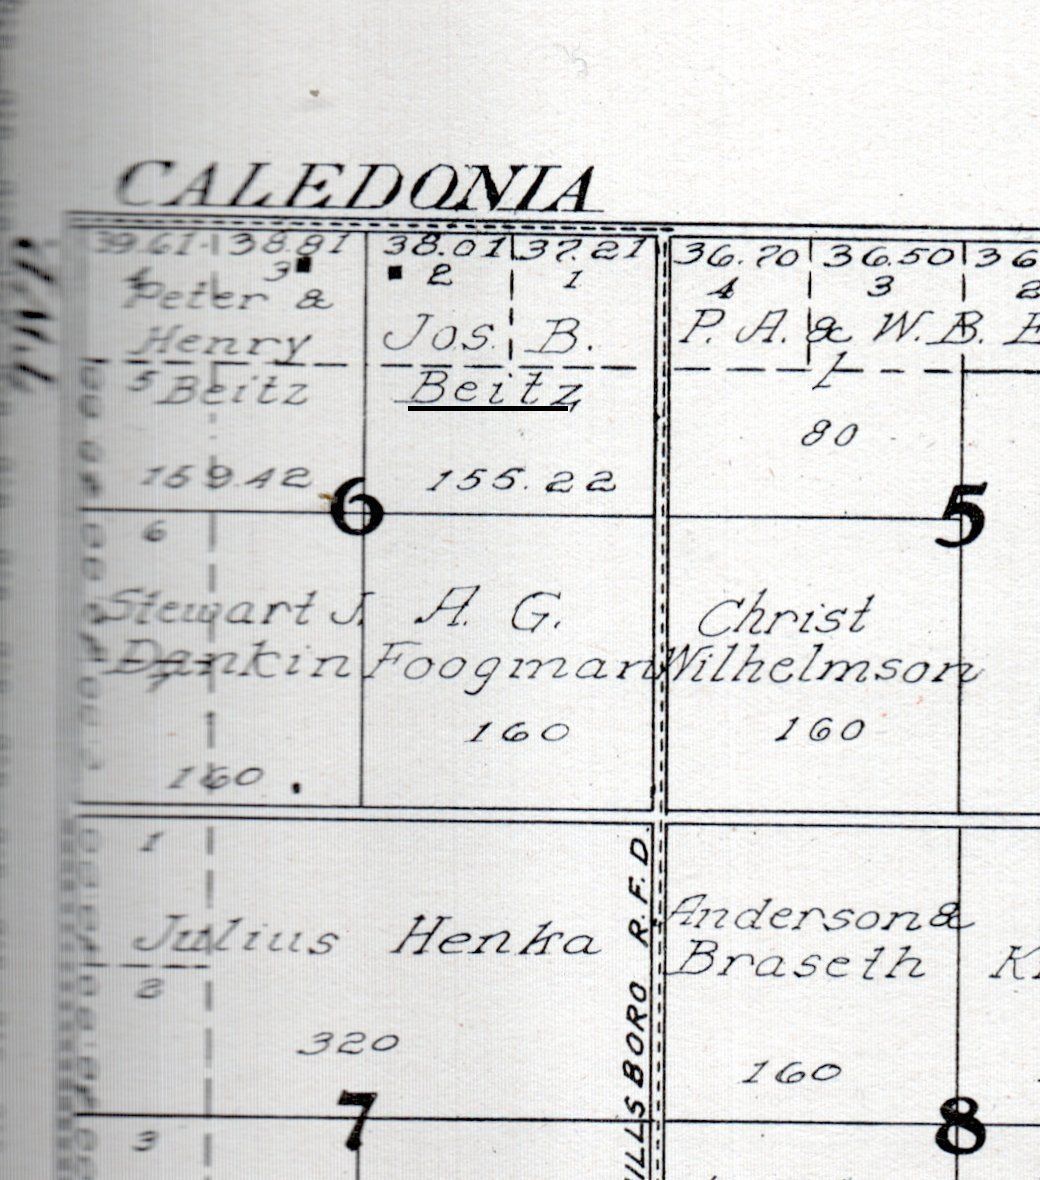 CALEDONIA
39.61 38.81 38.01 37.21 36.70 36.50 36
4 3 2 1 4 3 2
Peter &
Henry
5 Beitz
159.42
Jos. B.
Beitz
155.22
P. A. & W. B.
1
80
6
5
6
Stewart J.
Dankin
7
160
A. G.
Foogman
160
Christ
Wilhelmson
160
1
Julius Henka
2
320
HILLSBORO R.F.D.
Anderson &
Braseth
160
7
8
3